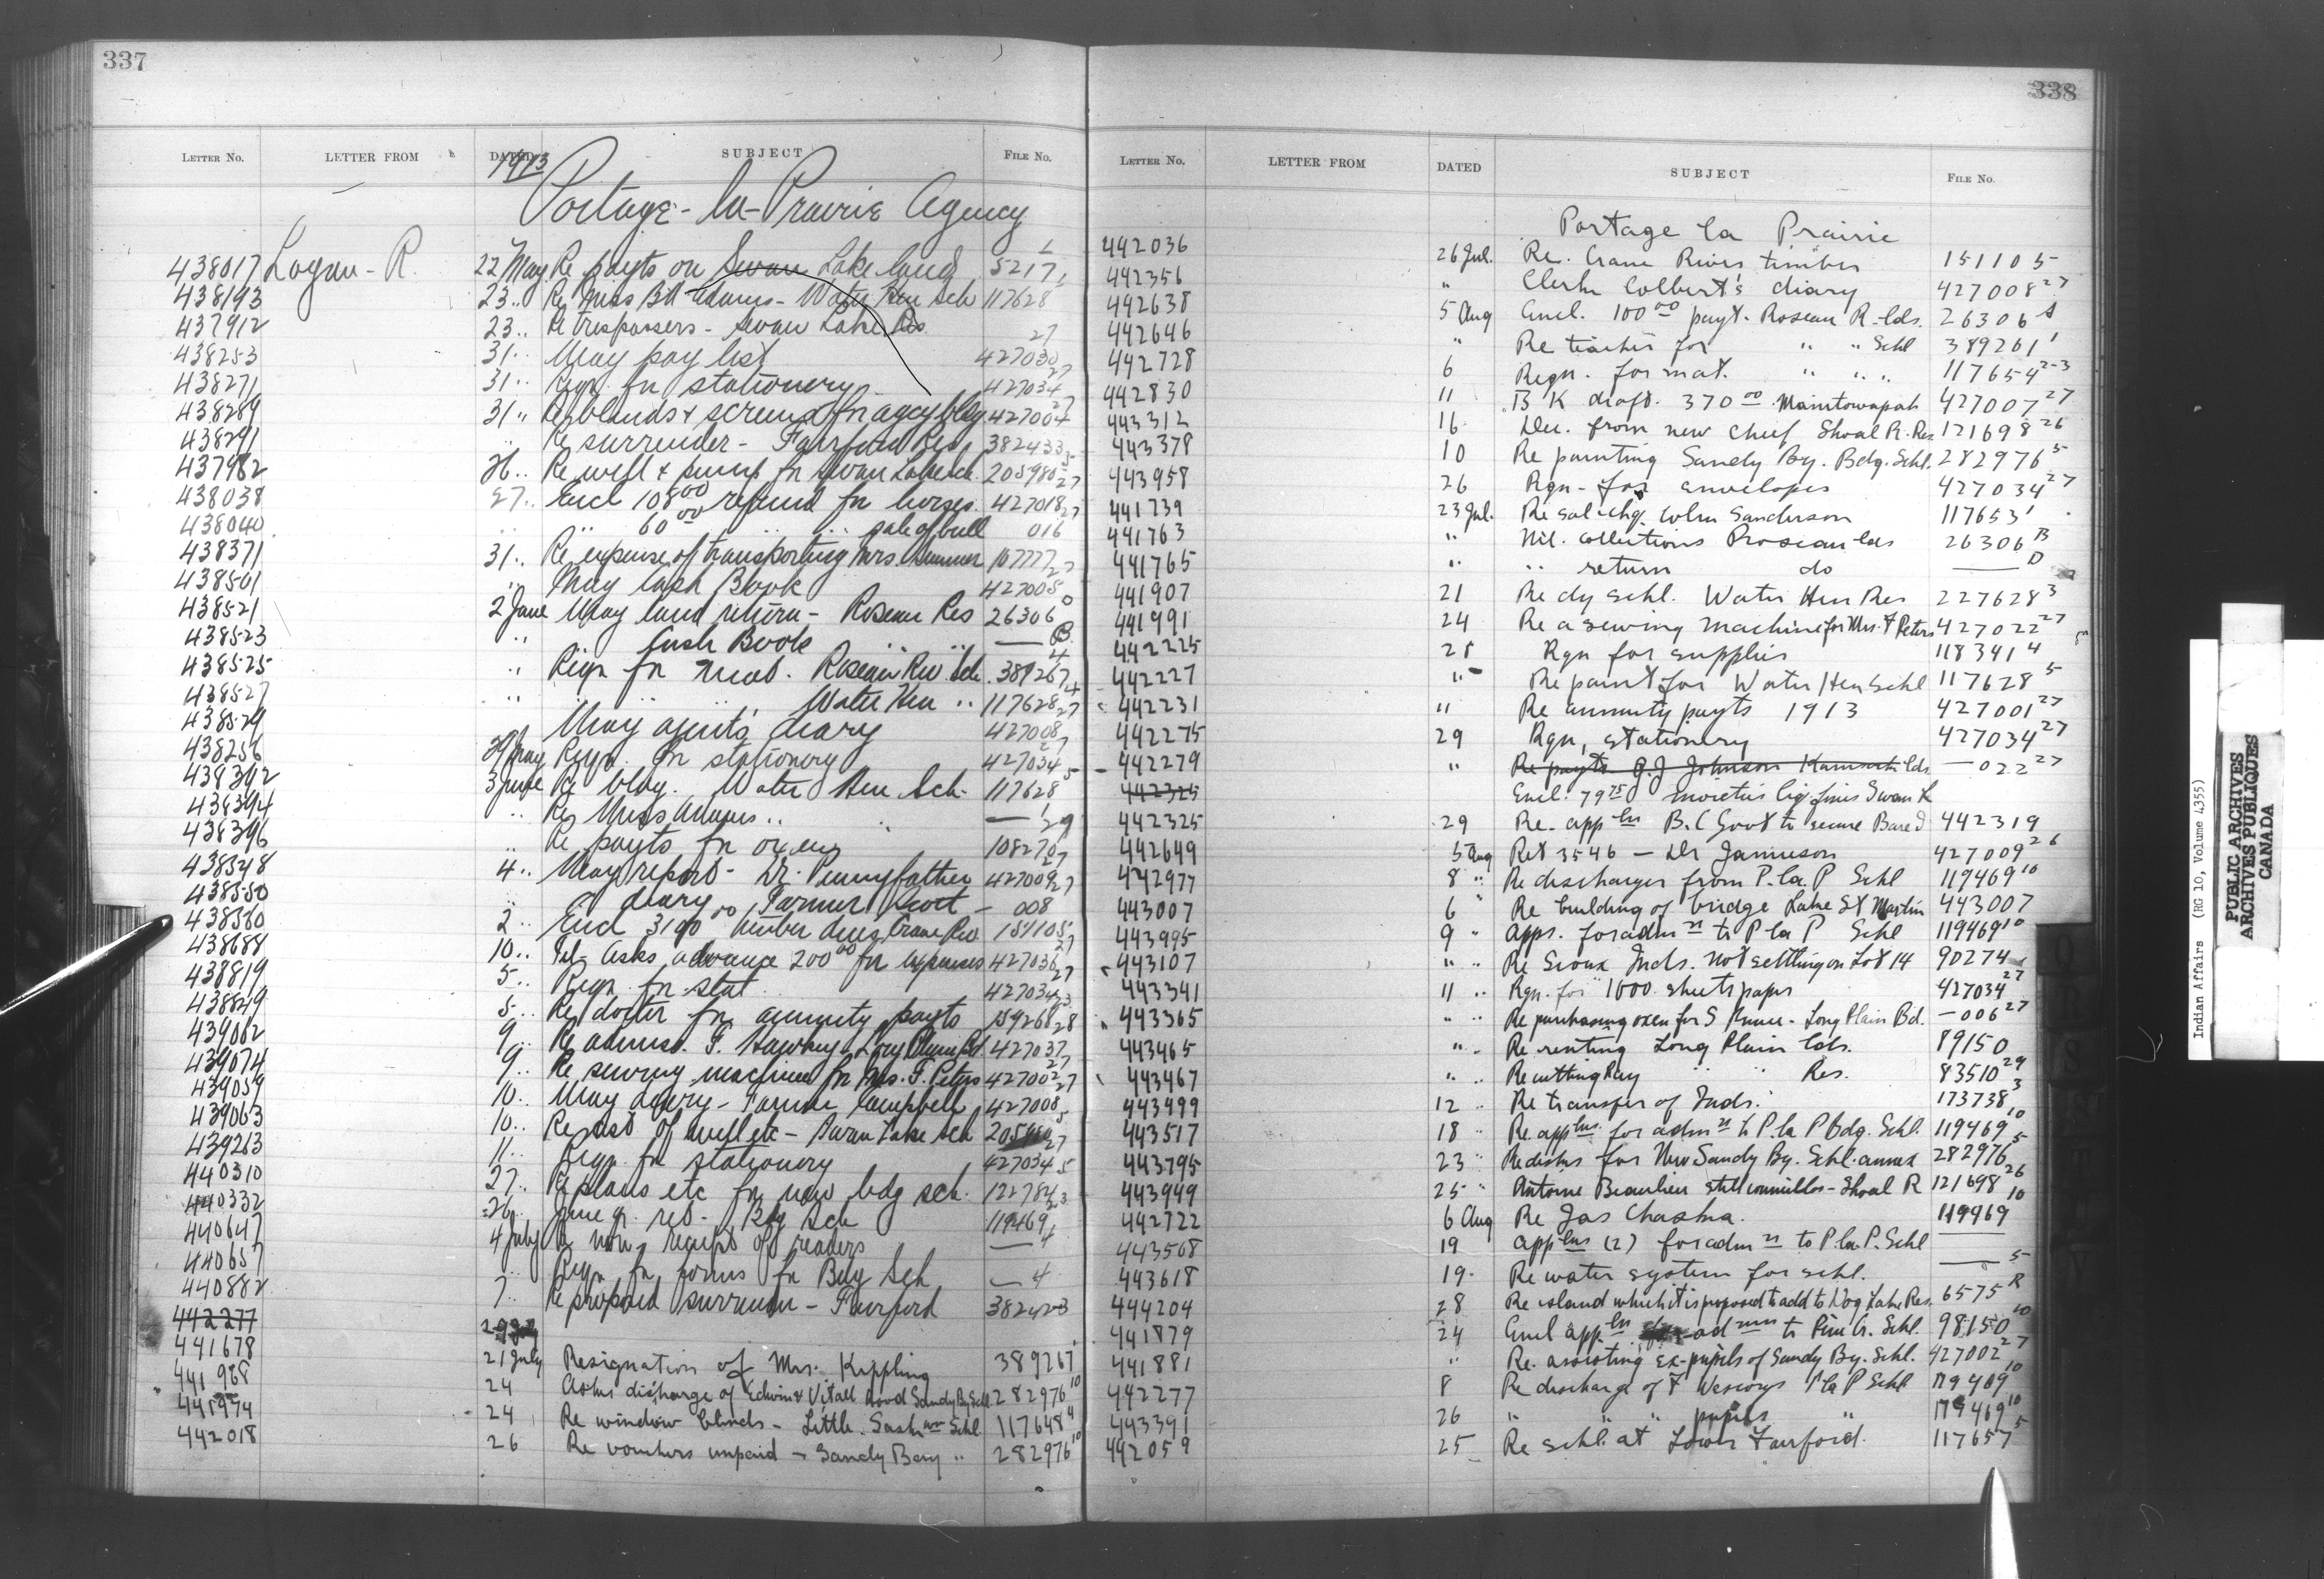 337
LETTER NO. LETTER FROM DATED SUBJECT FILE NO.
1913
Portage-la-Prairie Agency
438017 Logan - R. 22 May Re payts on Swan Lake land 5217 1
438193 23 .. Re Miss BA Adams - Water Hen Sch 117628 1
437912 23 .. Re trespassers - Swan Lake Res
438253 31 .. May pay list 427030 27
438271 31 .. Reqn. for stationery 427034 27
438289 31 .. Re blinds & screens for agcy bldg 427004 27
438291 .. Re surrender - Fairford Res 382433
437982 26 .. Re well & pump for Swan Lake sch 205980 5
438038 27 .. Encl 108 00 refund for horses 427018 27
438040 .. .. 60 00 .. .. sale of bull 016 27
438371 31 .. Re expense of transporting Mrs. Sumner 107777
438501 .. May Cash Book 427005 27
438521 2 June May land return - Roseau Res 26306 D
438523 .. Cash Book .. .. — B
438525 .. Reqn for mat. Roseau Riv Sch. 389267 4
438527 .. .. .. .. Water Hen .. 117628 4
438529 May agent's diary 427008 27
438256 29 May Reqn. for stationery 427034 27
438392 3 June Re bldg. Water Hen Sch. 117628 5
438394 .. Re Miss Adams .. .. — 1
438396 .. Re payts for oxen 108270 29
438548 4 .. May report - Dr. Pennyfather 427009 27
438550 .. diary - Farmer - 008 27
438580 2 .. Encl 31 00 timber dues Crane Riv 151105
438688 10 .. Tel - Asks advance 200 00 for expenses 427036 27
438819 5 .. Reqn. for stat. 427034 27
438849 5 .. Re doctor for annuity payts 159268 23
439062 9 .. Re admiss. F. Hawkey - Long Plain Bd. 427037 28
439074 9 .. Re sewing machine for Mrs. F. Peters 427002 27
439059 10 .. May diary - Farmer Campbell 427008 27
439063 10 .. Re cost of well etc - Swan Lake Sch 205980 5
439263 11 .. Reqn for stationery 427034 27
440310 27 .. Re plans etc for new bdg sch. 122784 5
440332 26 .. June qr. ret. - Bdg Sch 119469 3
440647 4 July Re non receipt of readers — 1
440657 .. Reqn for forms for Bdg Sch — 4
440882 7 .. Re proposed surrender - Fairford 382423
442277 29 July
441678 21 July Resignation of Mrs. Kippling 389267 1
441968 24 Asks discharge of Edwin & Vitall Hood Sandy By Schl. 282976 10
441974 24 Re window blinds - Little Saskn Schl 117648 4
442018 26 Re vouchers unpaid - Sandy Bay .. 282976 10
338
LETTER NO. LETTER FROM DATED SUBJECT FILE NO.
Portage la Prairie
442036 26 Jul. Re. Crane River timber 151105
442356 " Clerk Colbert's diary 427008 27
442638 5 Aug Encl. 100 00 payt. Roseau R. lds. 26306 A
442646 " Re teacher for " " Schl 389261 1
442728 6 Reqn. for mat. " " .. 117654 2-3
442830 11 B K draft. 370 00 Manitowapah 427007 27
443312 16 Dec. from new chief Shoal R. Res. 121698 26
443378 10 Re painting Sandy Bay. Bdg. Schl. 282976 5
443958 26 Rqn - for envelopes 427034 27
441739 23 Jul. Re sal. chq. Wm Sanderson 117653 1
441763 " Nil. collections Roseau lds 26306 B
441765 " .. return do — D
441907 21 Re dy schl. Water Hen Res 227628 3
441991 24 Re a sewing machine for Mrs. F Peters 427022 27
442225 25 Rqn for supplies 118341 4
442227 " Re paint for Water Hen Schl 117628 5
442231 " Re annuity payts 1913 427001 27
442275 29 Rqn, stationery 427034 27
442279 " Re payts G. J Johnson Kamsack lds — 022 27
442325 Encl. 79 75 moieties liq. fines Swan R
442325 29 Re - appln B.C Govt to secure Band 442319
442649 5 Aug Ret 3546 — Dr Jamieson 427009 26
442977 8 " Re discharges from P. la. P Schl 119469 10
443007 6 " Re building of bridge Lake St Martin 443007
443995 9 " Apps. for admn to P la P Schl 119469 10
443107 " .. Re Sioux Inds. not settling on Lot 14 90274
443341 11 .. Rqn. for 1000 sheets paper 427034 27
443365 " .. Re purchasing oxen for S Prince - Long Plain Bd. — 006 27
443465 " .. Re renting Long Plain lds. 89150
443467 " .. Re cutting hay .. " Res. 83510 29
443499 12 .. Re transfer of Inds. 173738 3
443517 18 " Re applns. for admn to P. la P bdg. Schl. 119469 10
443795 23 " Re desks for New Sandy By. Schl. annex 282976 5
443949 25 " Antoine Beaulieu still councillor - Shoal R 121698 26
442722 6 Aug Re Jas Chaska. 119469 10
443568 19 applns (2) for admn to P. la. P. Schl —
443618 19. Re water system for schl. — 5
444204 28 Re island which it is proposed to add to Dog Lake Res. 6575 R
441879 24 Encl appln for admn to Pine Cr. Schl. 98150 10
441881 " Re. assisting ex-pupils of Sandy By. Schl. 427002 27
442277 8 Re discharge of F Wescoys P la P Schl 119469 10
443391 26 " " " pupils " 119469 10
442059 25 Re schl. at Lower Fairford. 117657 5
Indian Affairs (RG 10, Volume 4355)
PUBLIC ARCHIVES
ARCHIVES PUBLIQUES
CANADA